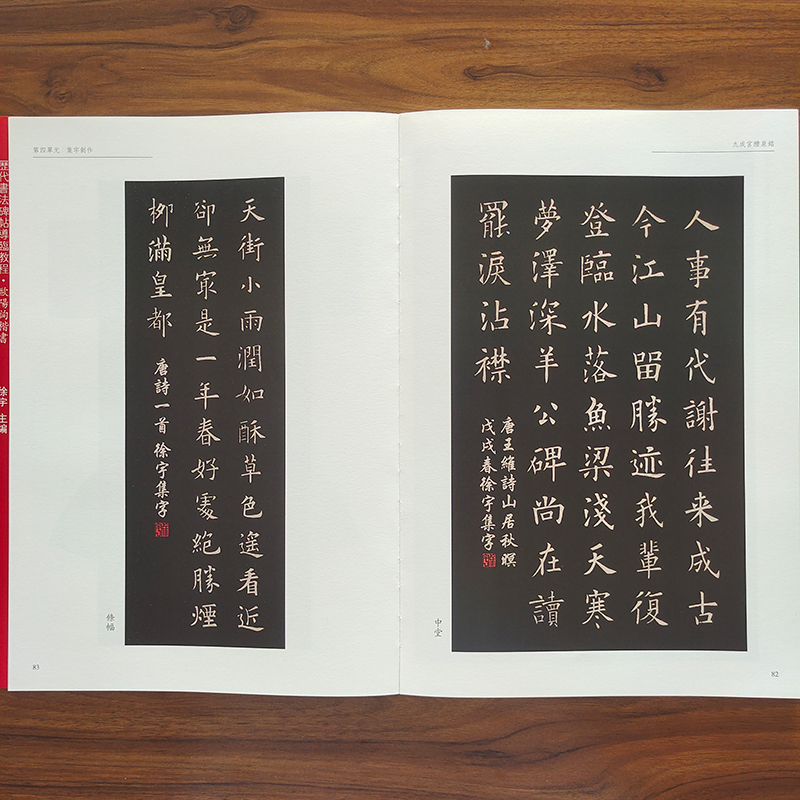 九成宮醴泉銘
人事有代謝往来成古
今江山留勝迹我輩復
登臨水落魚梁淺天寒
夢澤深羊公碑尚在讀
罷淚沾襟
唐王維詩山居秋暝
戊戌春徐宇集字
中堂
82
第四單元 集字創作
天街小雨潤如酥草色遥看近
卻無㝡是一年春好處絶勝煙
柳滿皇都
唐詩一首 徐宇集字
條幅
83
歷代書法碑帖導臨教程·歐陽詢楷書 徐宇 主編